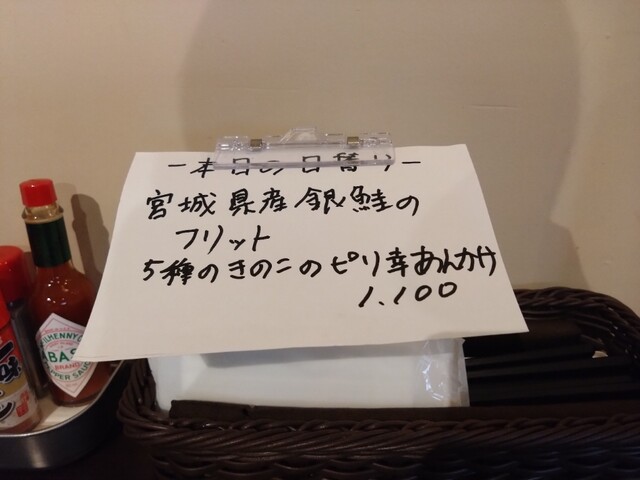 ー本日の日替りー
宮城県産銀鮭の
フリット
5種のきのこのピリ辛あんかけ
1.100
ILHENNY CO
BAS
BRAND
PPER SAUCE
味